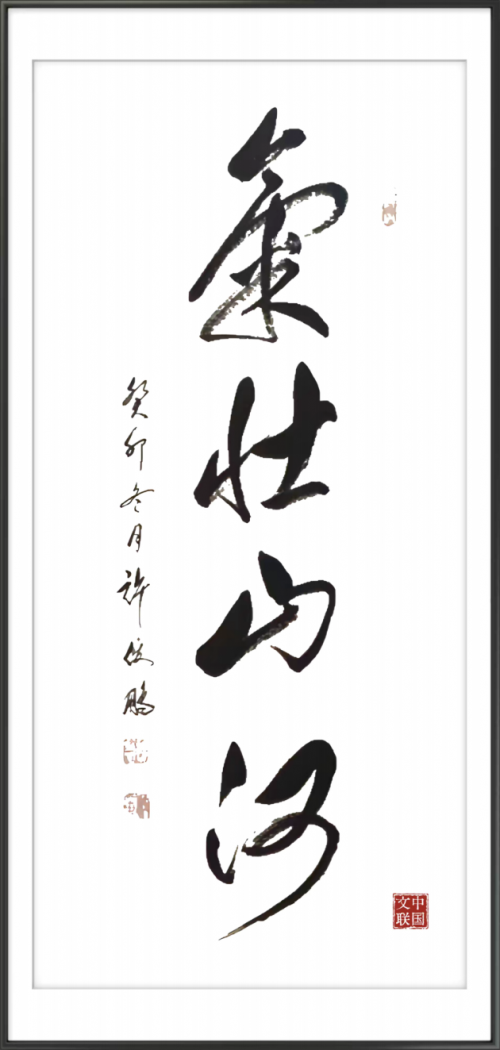 氣壯山河
癸卯冬月許俊鵬
中国
文联